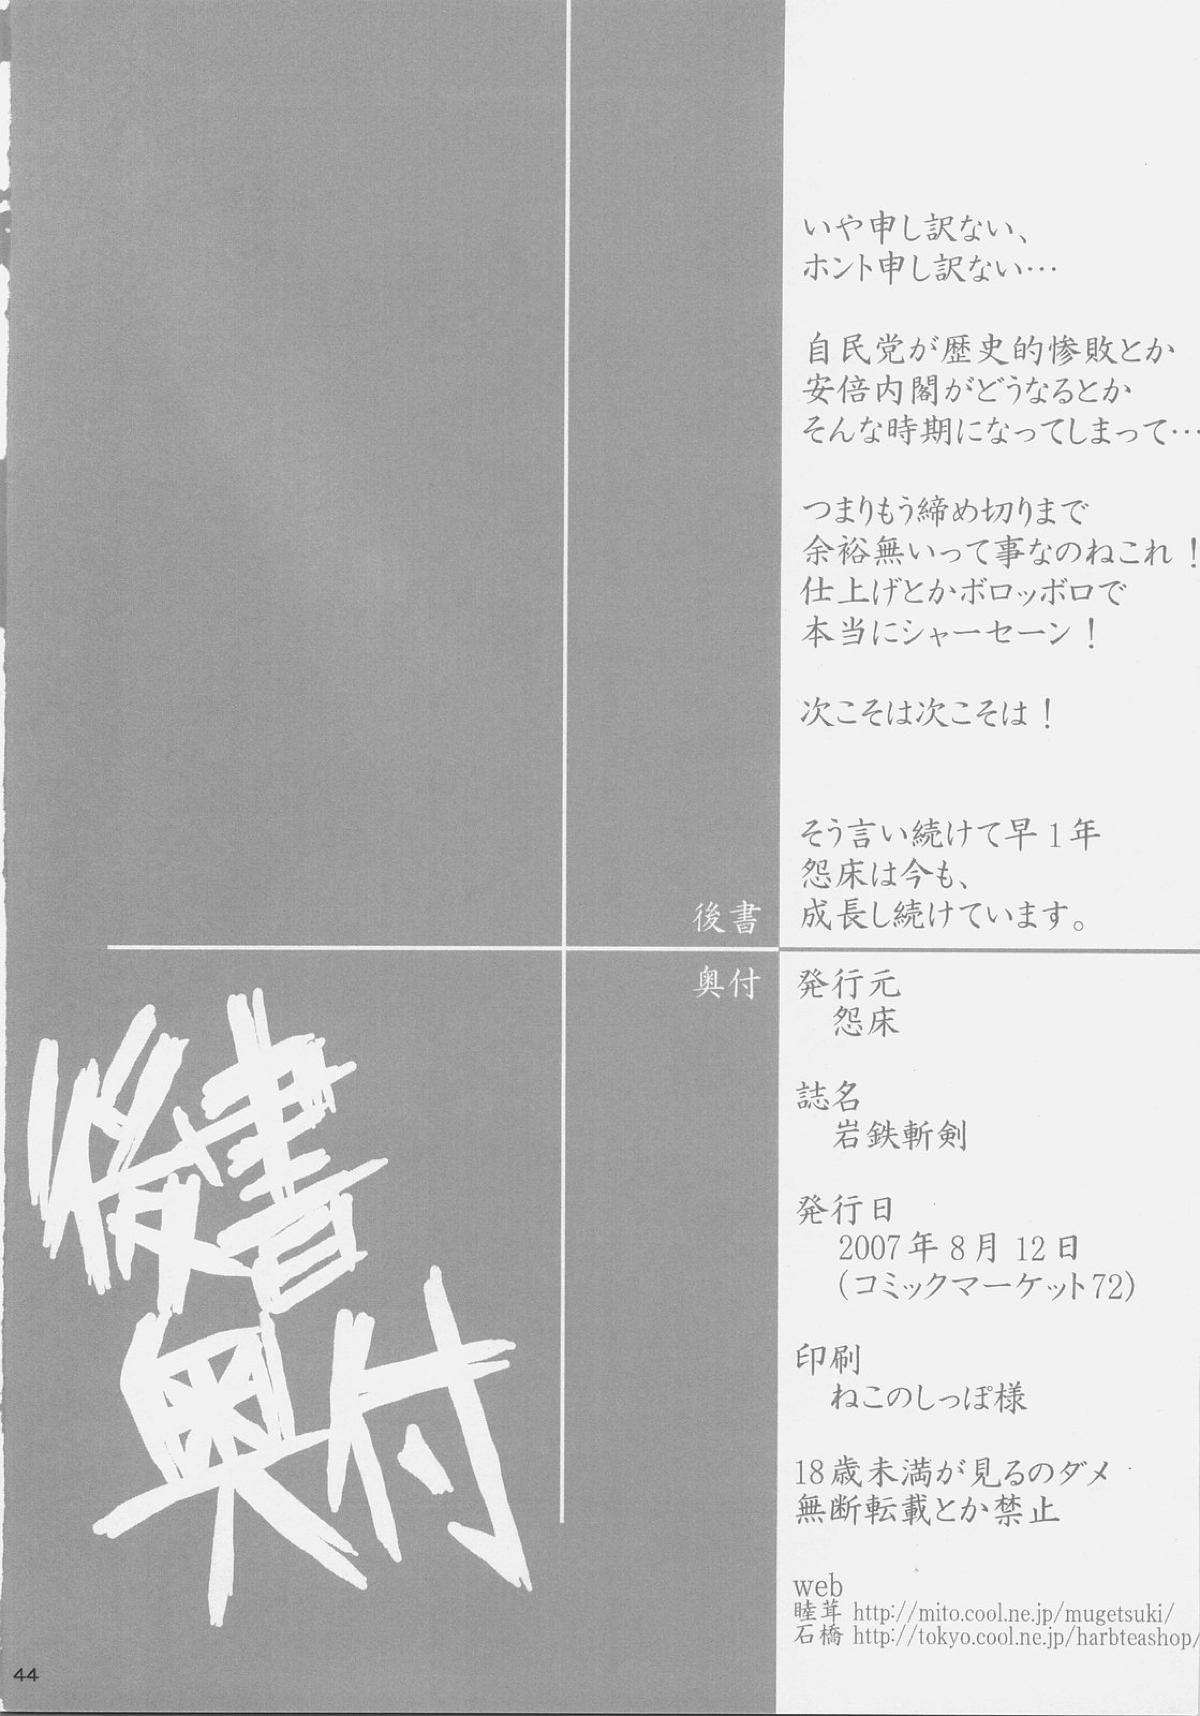 いや申し訳ない、
ホント申し訳ない…
自民党が歴史的惨敗とか
安倍内閣がどうなるとか
そんな時期になってしまって…
つまりもう締め切りまで
余裕無いって事なのねこれ！
仕上げとかボロッボロで
本当にシャーセーン！
次こそは次こそは！
そう言い続けて早1年
怨床は今も、
成長し続けています。
後書
奥付
発行元
怨床
誌名
岩鉄斬剣
発行日
2007年8月12日
(コミックマーケット72)
印刷
ねこのしっぽ様
18歳未満が見るのダメ
無断転載とか禁止
web
睦茸 http://mito.cool.ne.jp/mugetsuki/
石橋 http://tokyo.cool.ne.jp/harbteashop/
後書
奥付
44